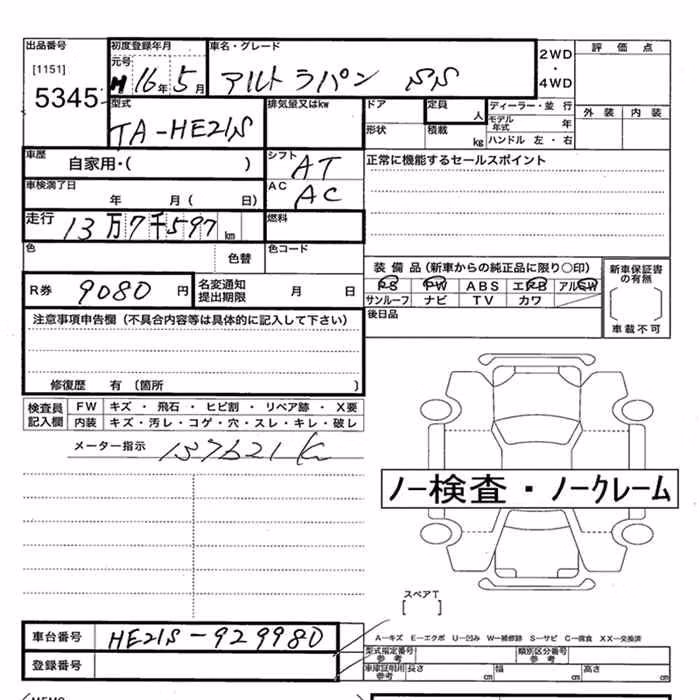 出品番号 初度登録年月 車名・グレード 2WD・4WD 評価点
[1151] 元号
5345 H16年5月 アルトラパン SS
外装 内装
型式 排気量又はkw ドア 定員 人 ディーラー・並行
モデル年式 年
TA-HE21S 形状 積載 kg ハンドル 左・右
車歴 自家用・( ) シフト AT 正常に機能するセールスポイント
車検満了日 年 月( 日) AC AC
走行 13万7千597km 燃料
色 色替 色コード
装備品(新車からの純正品に限り○印) 新車保証書の有無
R券 9080円 名変通知提出期限 月 日 PS PW ABS エアB アルミW
サンルーフ ナビ TV カワ
注意事項申告欄(不具合内容等は具体的に記入して下さい) 後日品 車載不可
修復歴 有〔箇所 〕
検査員記入欄 FW キズ・飛石・ヒビ割・リペア跡・X要
内装 キズ・汚レ・コゲ・穴・スレ・キレ・破レ
メーター指示 137621K
ノー検査・ノークレーム
スペアT
[ ]
車台番号 HE21S-929980 A-キズ E-エクボ U-凹み W-補修跡 S-サビ C-腐食 XX-交換済
登録番号 型式指定番号参考 類別区分番号参考
車庫証明用参考 長さ cm 幅 cm 高さ cm
MEMO